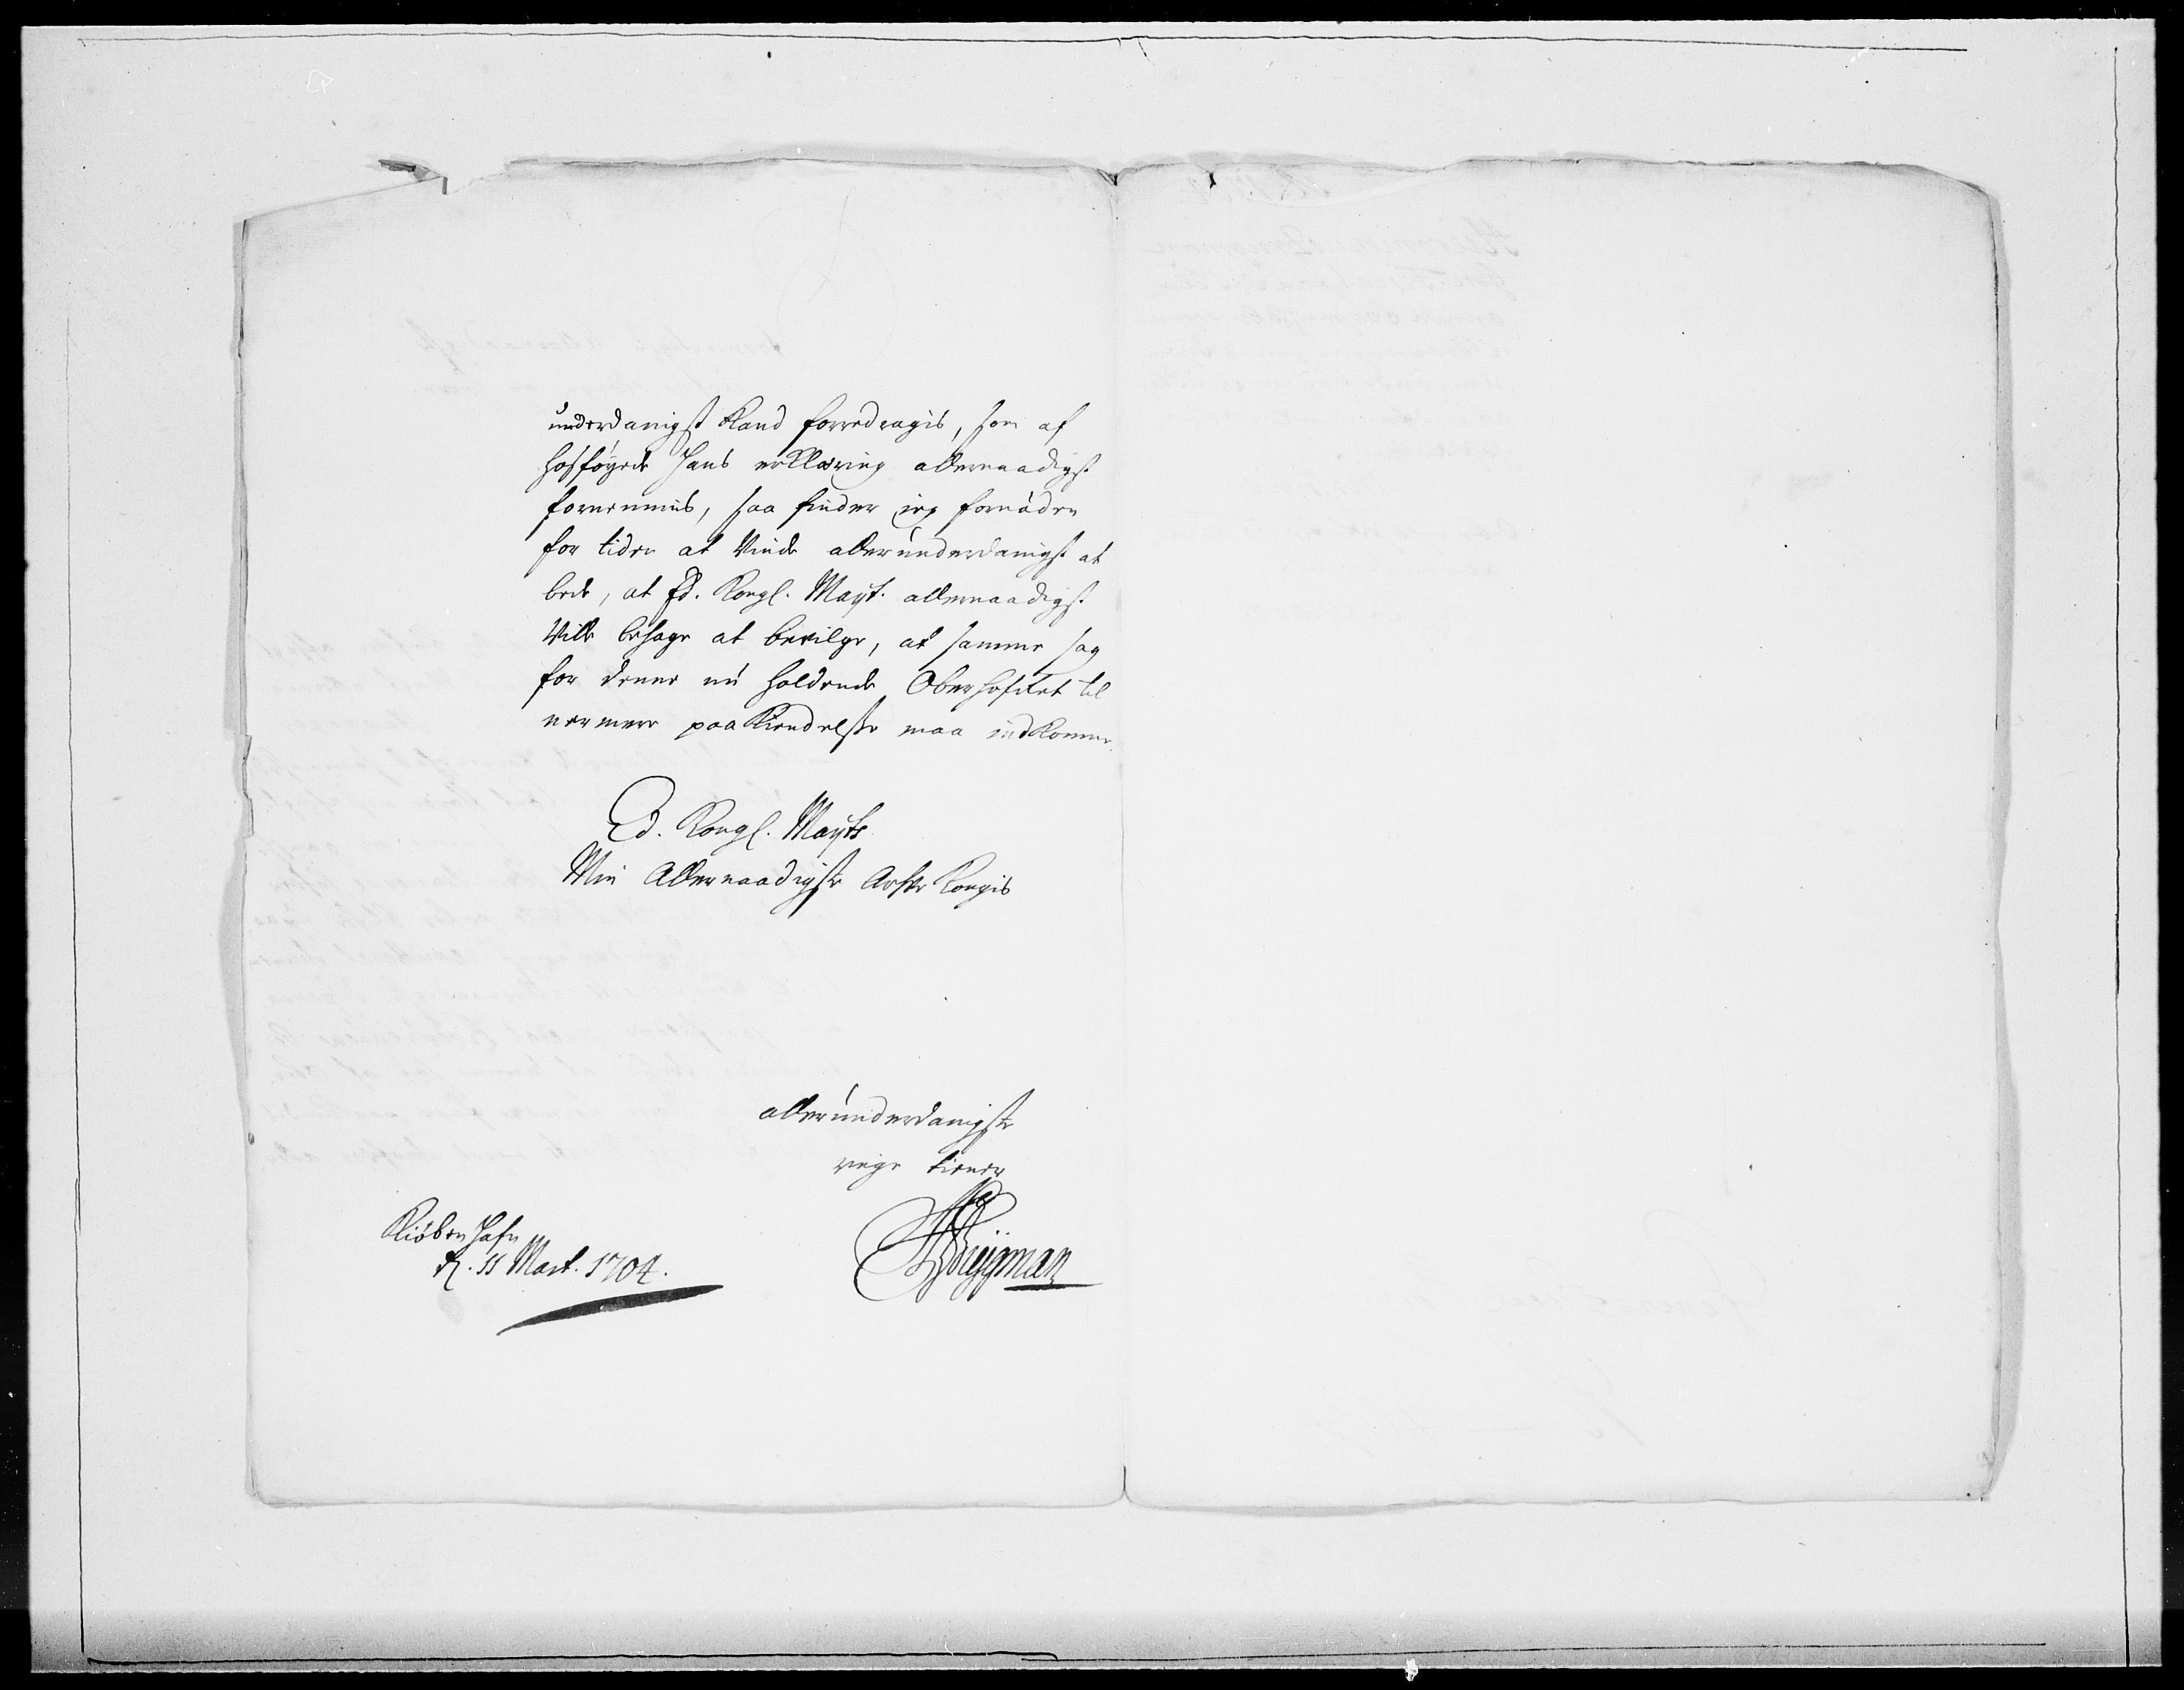 underdanigst Kand forredragis, som af
hosføyede hans erklæring allernaadigst
fornemmis, saa finder ieg fornøden
for tiden at Vinde allerunderdanigst at
bede, at Ed. Kongl. Mayt. allernaadigst
Ville behage at bevilge, at samme sag
for denne nu holdende Oberhofret til
nermere paaKiendelsse maa indkomme.
Ed. Kongl. Mayts
Min Allernaadigste Arfve Kongis
allerunderdanigste
ringe tiener
Kiøbenhafn
d. 11 Mart. 1704.